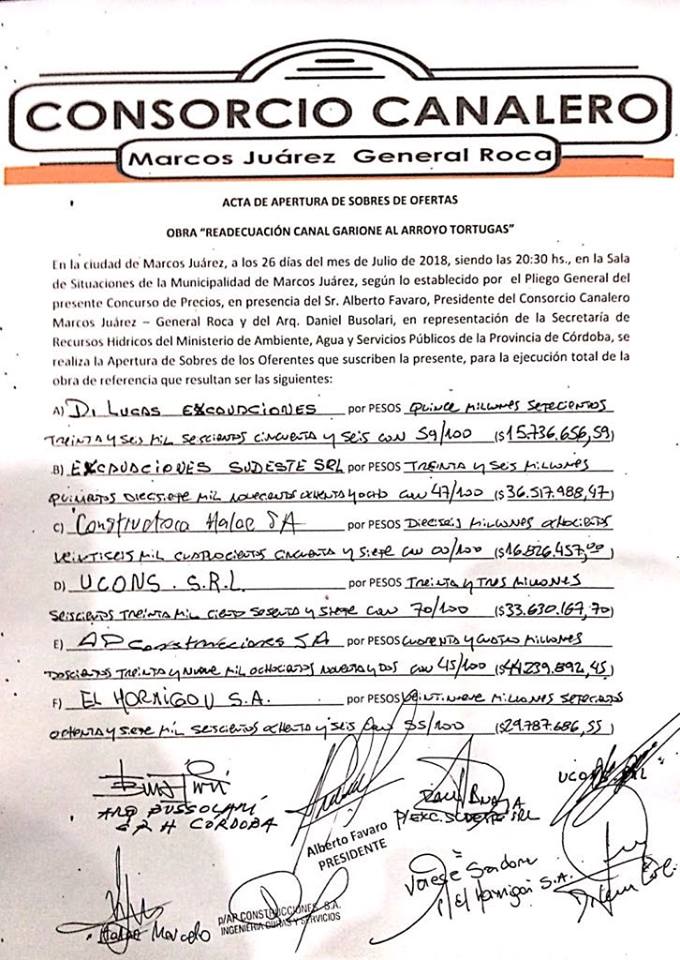 CONSORCIO CANALERO
Marcos Juárez General Roca
ACTA DE APERTURA DE SOBRES DE OFERTAS
OBRA "READECUACIÓN CANAL GARIONE AL ARROYO TORTUGAS"
En la ciudad de Marcos Juárez, a los 26 días del mes de Julio de 2018, siendo las 20:30 hs., en la Sala
de Situaciones de la Municipalidad de Marcos Juárez, según lo establecido por el Pliego General del
presente Concurso de Precios, en presencia del Sr. Alberto Favaro, Presidente del Consorcio Canalero
Marcos Juárez – General Roca y del Arq. Daniel Busolari, en representación de la Secretaría de
Recursos Hídricos del Ministerio de Ambiente, Agua y Servicios Públicos de la Provincia de Córdoba, se
realiza la Apertura de Sobres de los Oferentes que suscriben la presente, para la ejecución total de la
obra de referencia que resultan ser las siguientes:
A) Di Lucas EXCAVACIONES por PESOS QUINCE MILLONES SETECIENTOS
TREINTA Y SEIS MIL SESCIENTOS CINCUENTA Y SEIS CON 59/100 ($15.736.656,59)
B) EXCAVACIONES SUDESTE SRL por PESOS TREINTA Y SEIS MILLONES
QUINIENTOS DIECISIETE MIL NOVECIENTOS OCHENTA Y OCHO CON 47/100 ($36.517.988,47)
C) Constructora Halac SA por PESOS DIECISEIS MILLONES OCHOCIENTOS
VEINTISEIS MIL CUATROCIENTOS CINCUENTA Y SIETE CON 00/100 ($16.826.457,00)
D) UCONS. S.R.L. por PESOS TREINTA Y TRES MILLONES
SEISCIENTOS TREINTA MIL CIENTO SESENTA Y SIETE CON 70/100 ($33.630.167,70)
E) AP Construcciones SA por PESOS CUARENTA Y CUATRO MILLONES
DOSCIENTOS TREINTA Y NUEVE MIL OCHOCIENTOS NOVENTA Y DOS CON 45/100 ($44.239.892,45)
F) EL HORMIGON S.A. por PESOS VEINTINUEVE MILLONES SETECIENTOS
OCHENTA Y SIETE MIL SESCIENTOS OCHENTA Y SEIS CON 55/100 ($29.787.686,55)
ARQ BUSSOLARI
S R H CORDOBA
Alberto Favaro
PRESIDENTE
P/EXC. SUDESTE SRL
UCONS SRL
Halac Marcelo
p/AP CONSTRUCCIONES S.A.
INGENIERIA OBRAS Y SERVICIOS
P/ El Hormigon S.A.